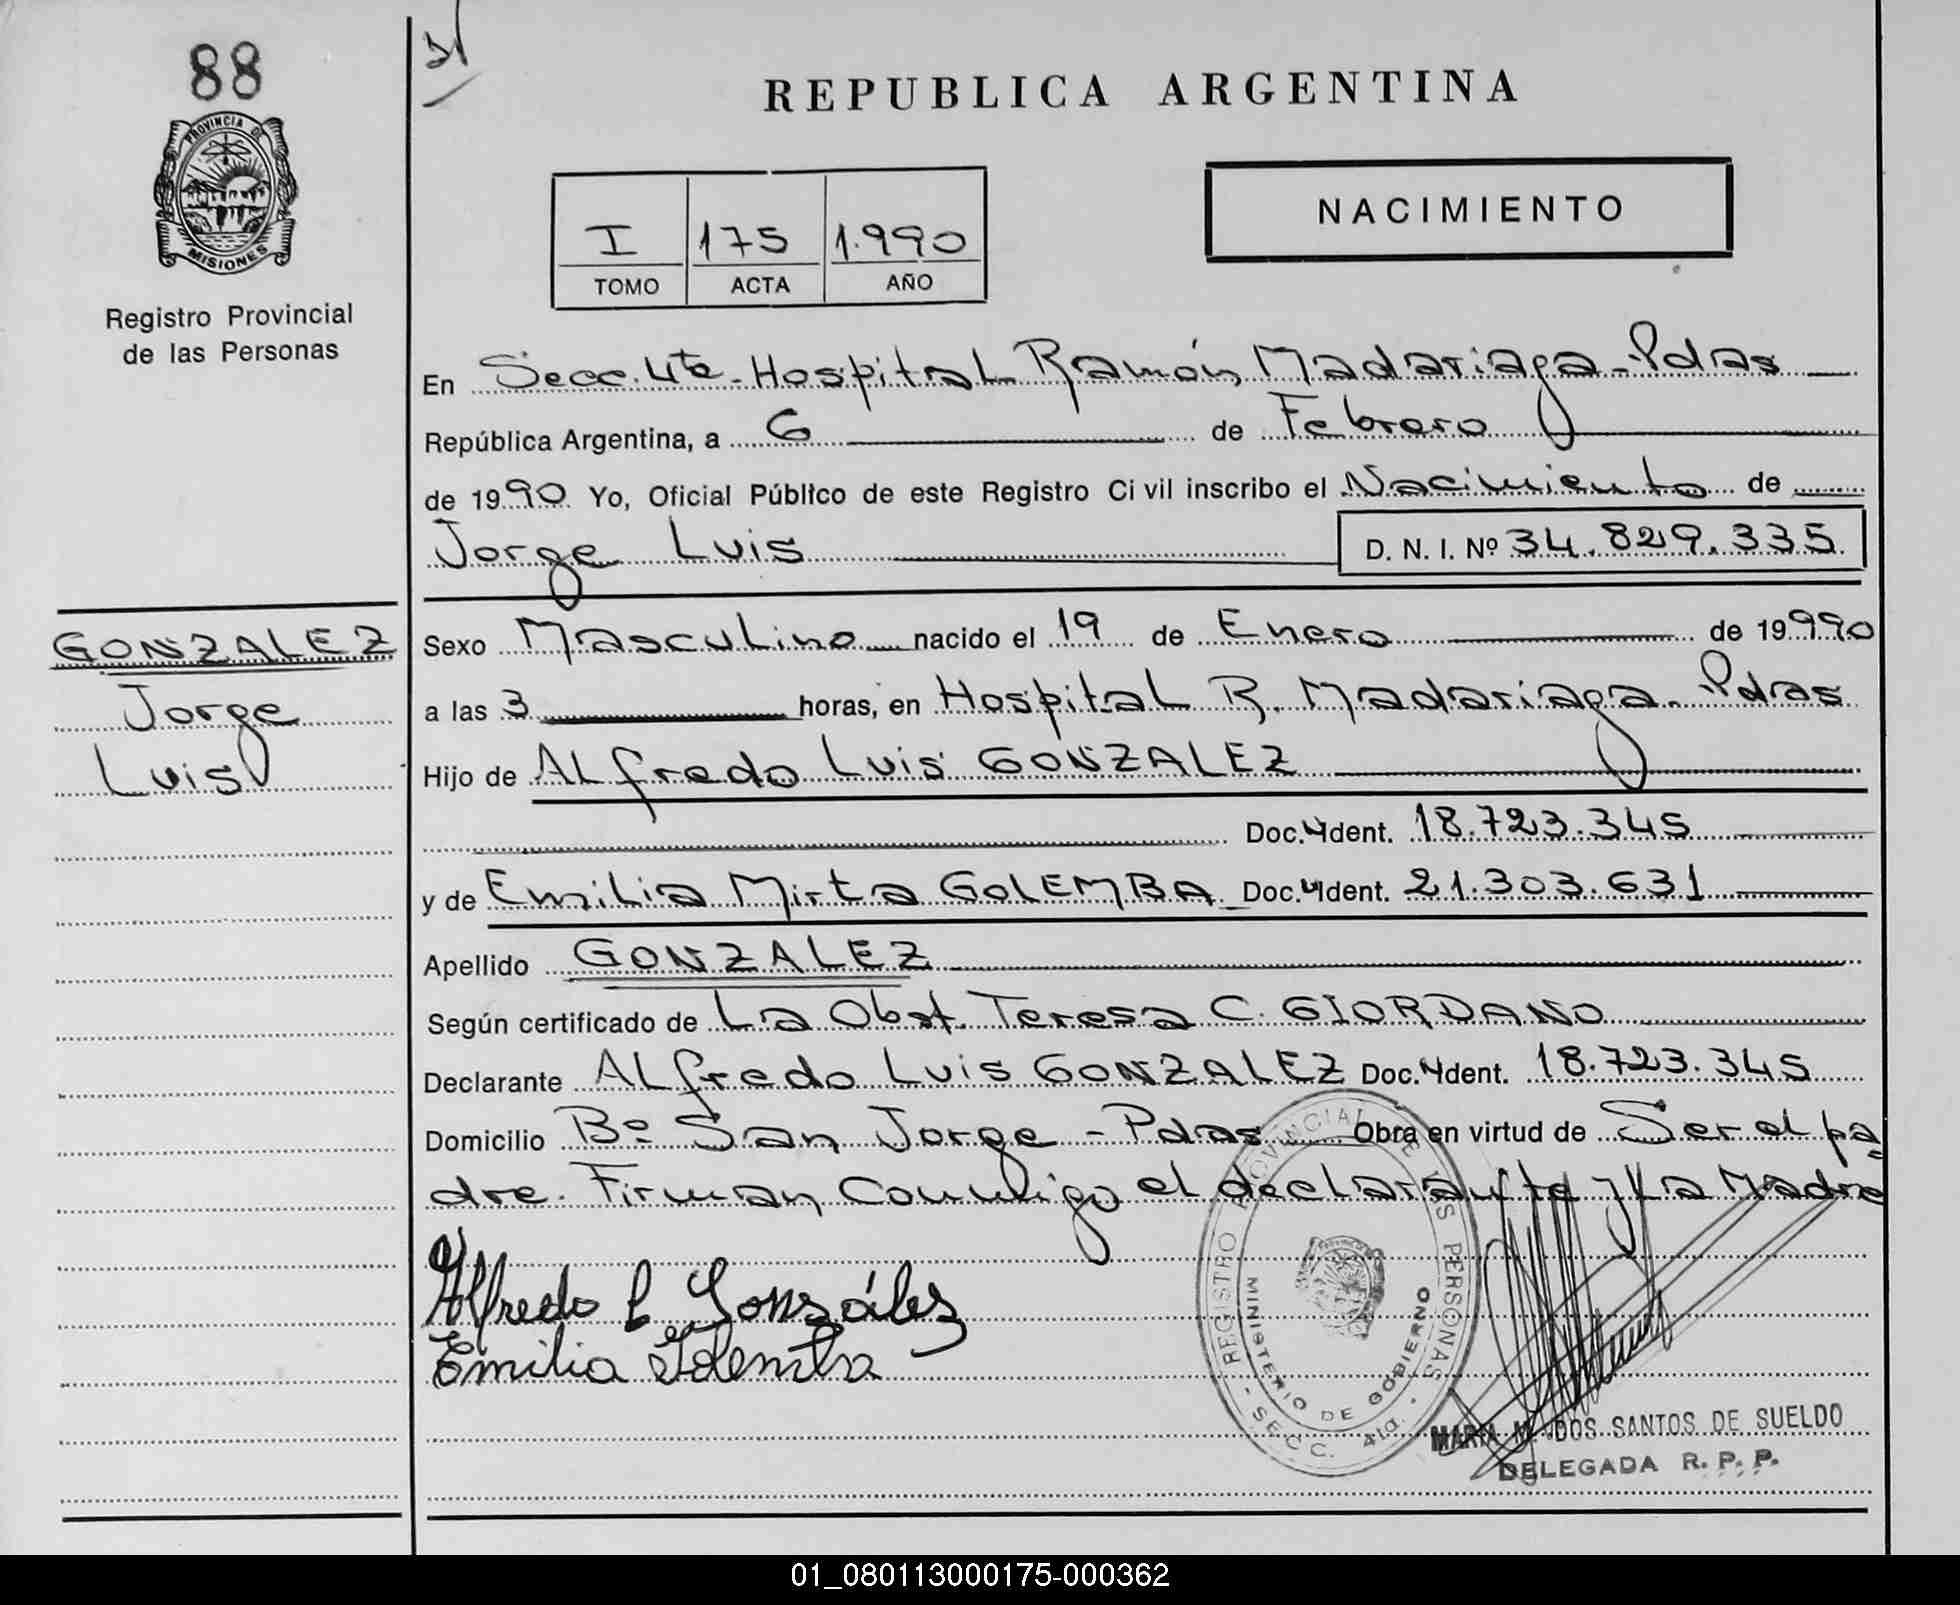 88
PROVINCIA DE
MISIONES
Registro Provincial
de las Personas
GONZALEZ
Jorge
Luis
REPUBLICA ARGENTINA
I 175 1.990
TOMO ACTA AÑO
NACIMIENTO
En Secc. 4ta - Hospital Ramón Madariaga - Pdas
República Argentina, a 6 de Febrero
de 1990 Yo, Oficial Público de este Registro Civil inscribo el Nacimiento de
Jorge Luis D. N. I. Nº 34.829.335
Sexo Masculino nacido el 19 de Enero de 19990
a las 3 horas, en Hospital R. Madariaga - Pdas
Hijo de Alfredo Luis GONZALEZ
Doc. Ident. 18.723.345
y de Emilia Mirta GOLEMBA Doc. Ident. 21.303.631
Apellido GONZALEZ
Según certificado de La Obst. Teresa C. GIORDANO
Declarante Alfredo Luis GONZALEZ Doc. Ident. 18.723.345
Domicilio Bº San Jorge - Pdas Obra en virtud de Ser el pa=
dre. Firman Conmigo el declarante y La Madre
Alfredo L González
Emilia Golemba
REGISTRO PROVINCIAL DE LAS PERSONAS
MINISTERIO DE GOBIERNO
- SECC. 4ta. -
MARIA M. DOS SANTOS DE SUELDO
DELEGADA R. P. P.
01_080113000175-000362